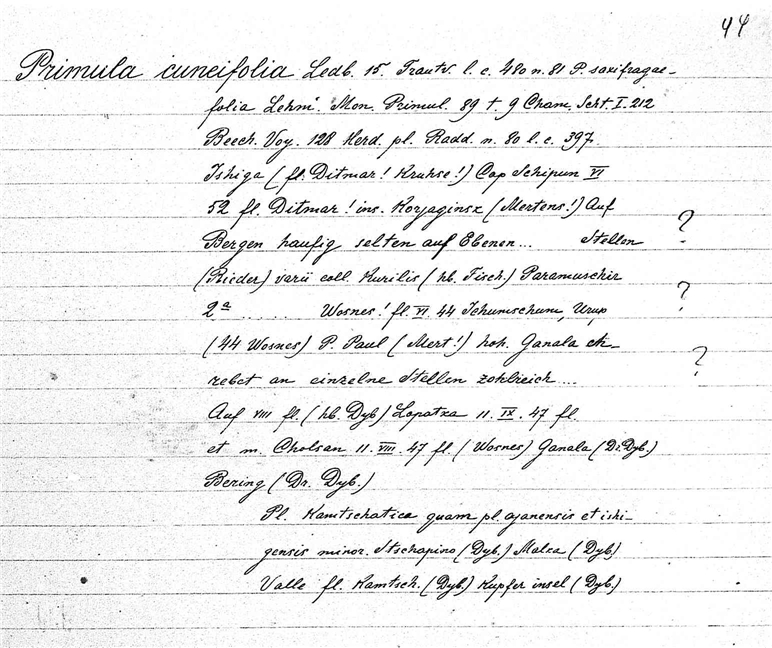 44
Primula cuneifolia Ledb. 15. Trautv. l. c. 480 n. 81 P. saxifragae-
folia Lehm. Mon. Primul. 89 t. 9 Cham. Scht. I. 212
Beech. Voy. 128 Herd. pl. Radd. n. 80 l. c. 397.
Ishiga (fl. Ditmar! Kruhse!) Cap Schipun VI
52 fl. Ditmar! ins. Korjaginsk (Mertens!) Auf
Bergen haufig selten auf Ebenen... Stellen ?
(Rieder) varii coll. Kurilis (hb. Fisch.) Paramuschir
2a ....... Wosnes! fl. VI. 44 Schumschum, Urup ?
(44 Wosnes) P. Paul (Mert!) hoh. Ganala ?
an einzelne Stellen zahlreich...
Auf VIII fl. (hb. Dyb) Lopatxa 11. IX. 47 fl.
et m. Cholsan 11. VIII. 47 fl. (Wosnes) Ganala (Dr. Dyb.)
Bering (Dr. Dyb.)
Pl. Kamtschatica quam pl. ajanensis et ishi-
gensis minor. Itschapino (Dyb.) Malxa (Dyb)
Valle fl. Kamtsch. (Dyb) Kupfer insel (Dyb.)